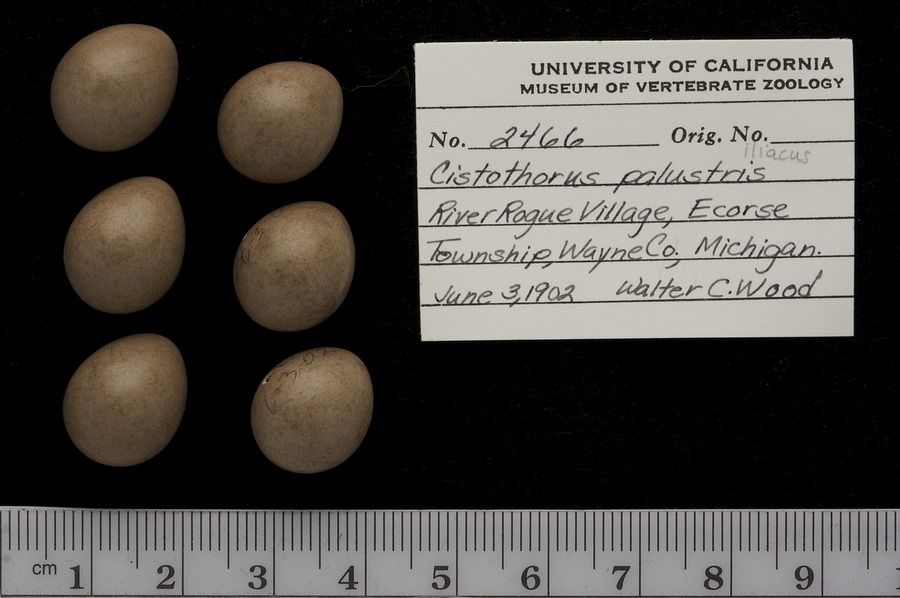 UNIVERSITY OF CALIFORNIA
MUSEUM OF VERTEBRATE ZOOLOGY
No. 2466 Orig. No.
iliacus
Cistothorus palustris
River Rogue Village, Ecorse
Township, Wayne Co., Michigan.
June 3, 1902 Walter C. Wood
cm 1 2 3 4 5 6 7 8 9